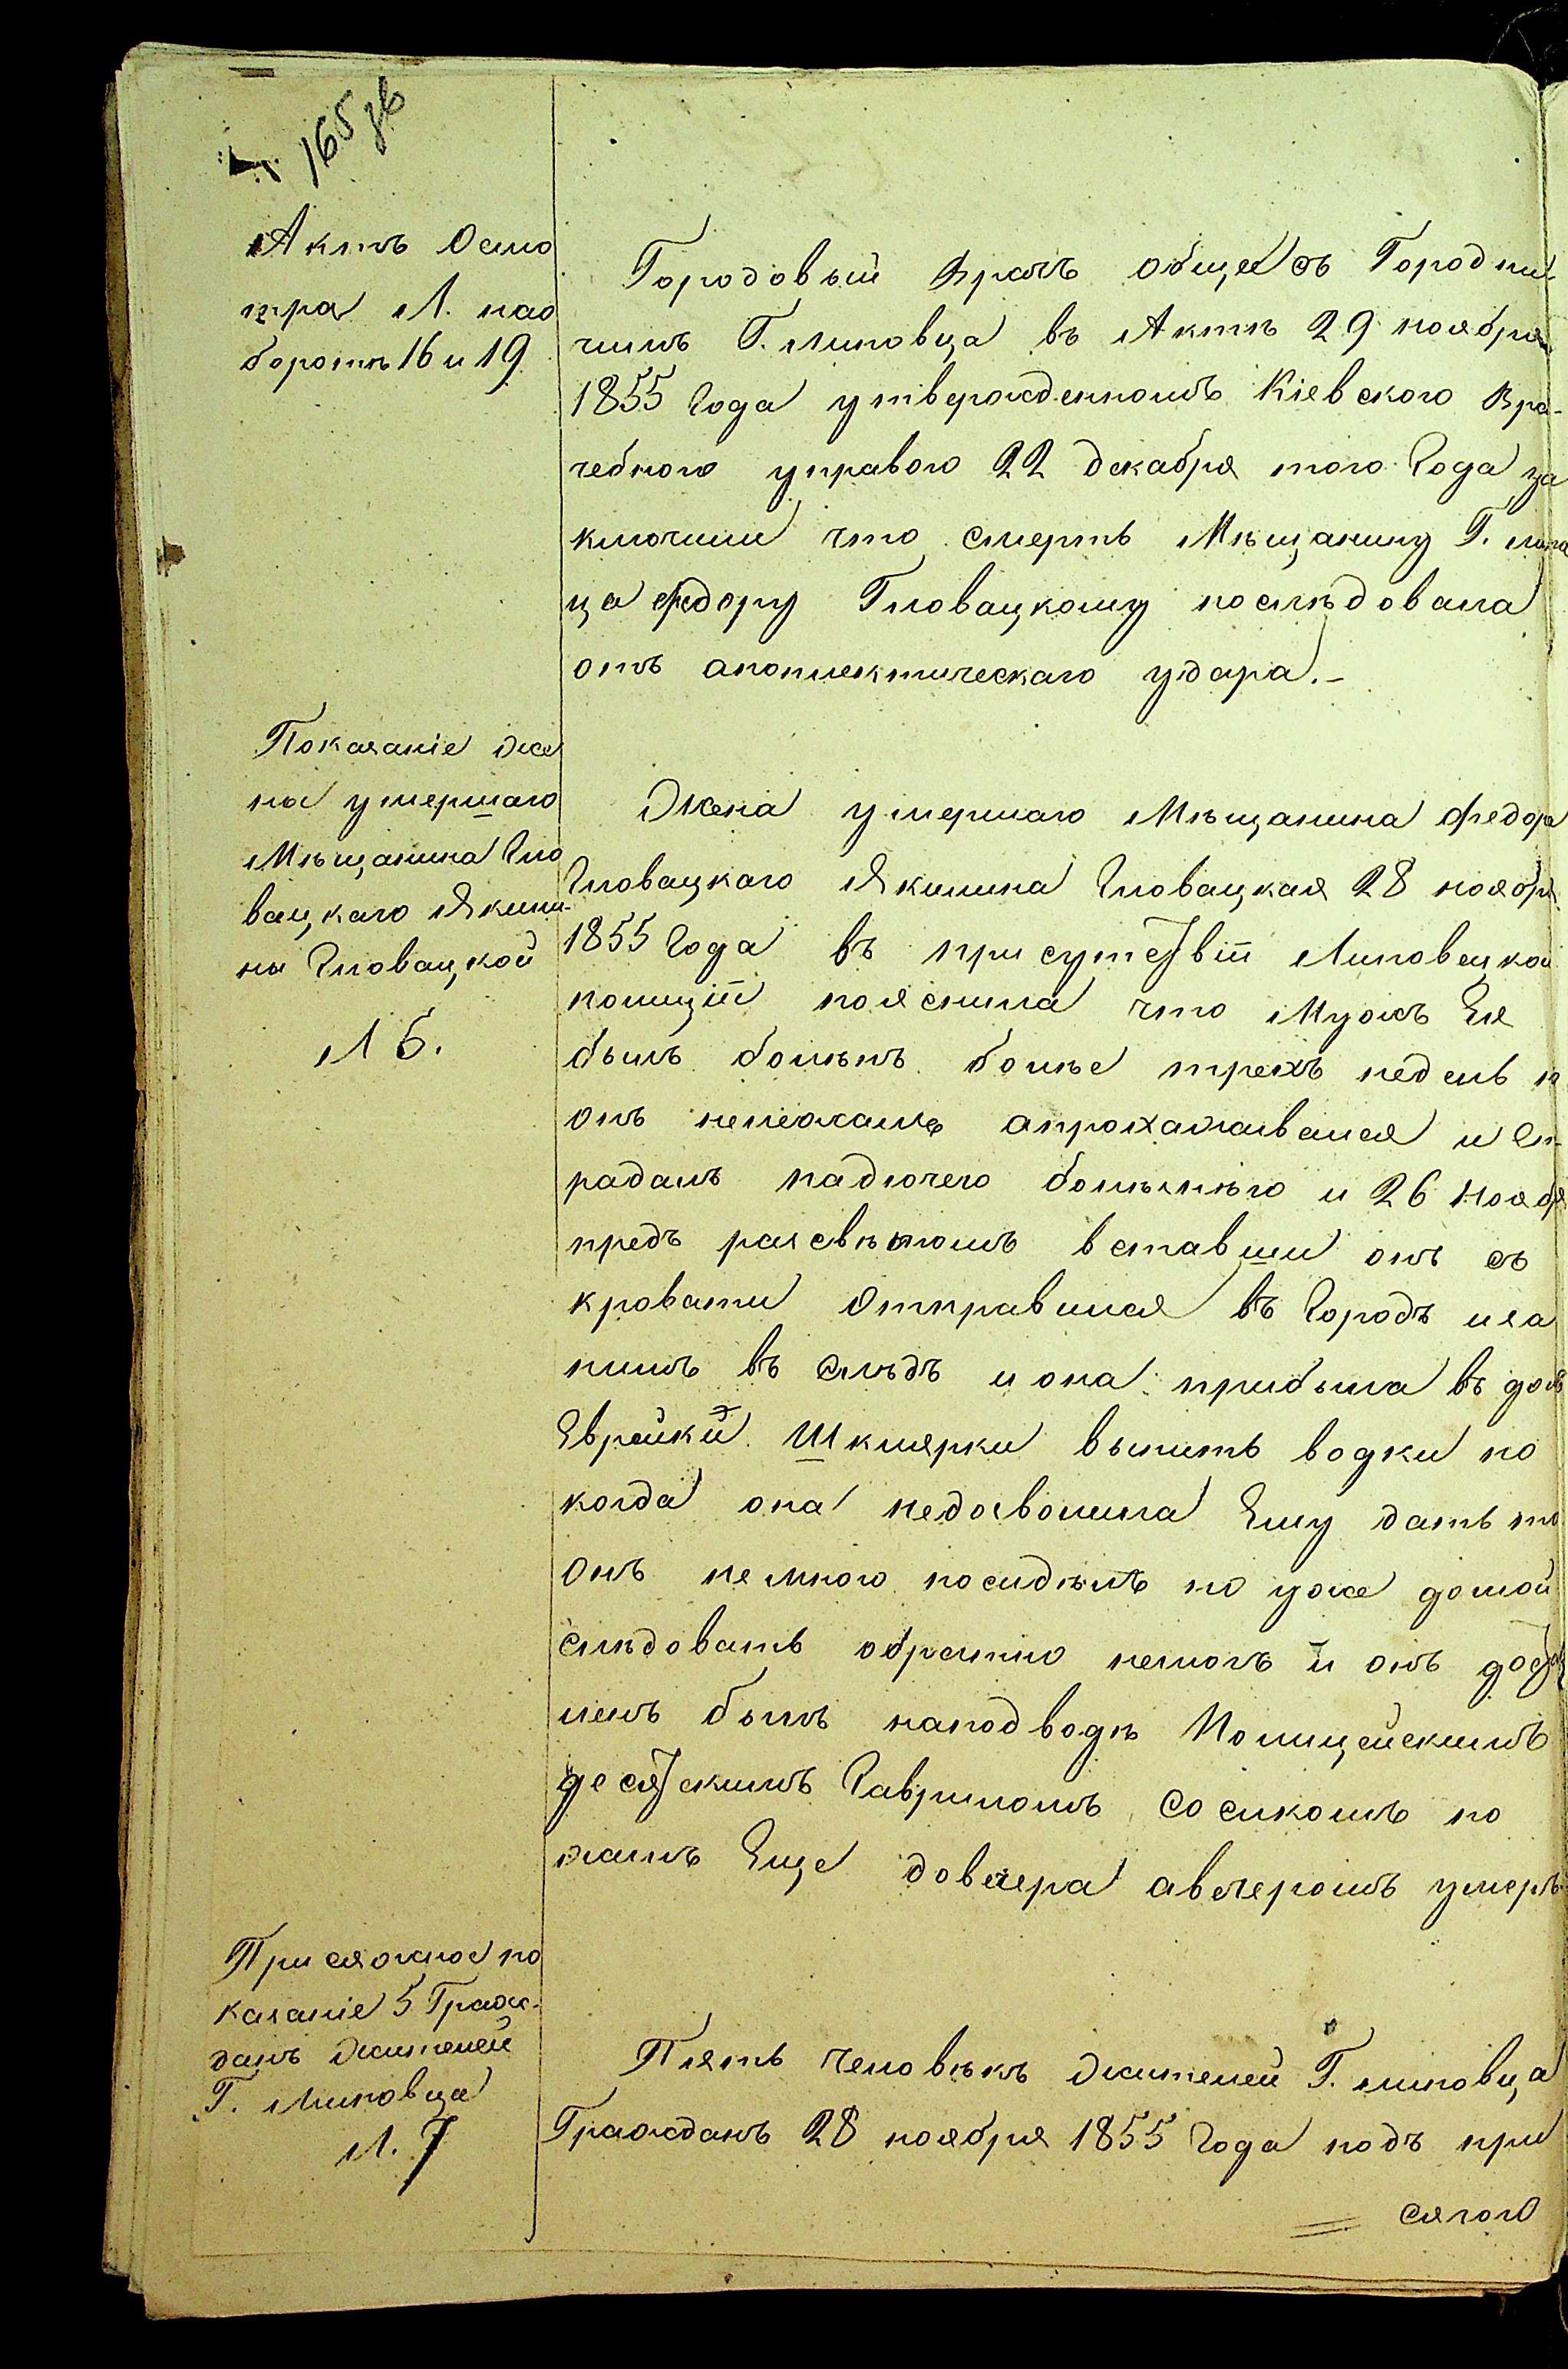 165 зв
Актъ Осмо
тра Л. нао
боротѣ 16 и 19
Городовый врачъ обще съ Городни-
чимъ Г. Липовца въ Актѣ 29 ноября
1855 Года утвержденномъ Кіевскою Вра-
чебною управою 22 декабря того Года за
ключили что смерть Мѣщанину Г. Липов
ца Федору Гловацкому послѣдовала
отъ апоплектическаго удара.-
Показаніе Же
ны умершаго
Мѣщанина Гло
вацкаго Якили-
ны Гловацкой
Л 6.
Жена умершаго Мѣщанина Федора
Гловацкаго Якилина Гловацкая 28 ноября
1855 Года въ присутствіи Липовецкой
полиціи пояснила что Мужъ Ея
былъ болѣнъ болѣе трехъ недель но
онъ нележалъ апрохаживался и Ст-
радалъ падючею болѣзнѣю и 26 Ноября
предъ разсвѣтомъ вставши онъ съ
кровати Отправился въ Городъ иза
нимъ въ слѣдъ и она прибыла въ домъ
Еврейки Шклярки выпить водки но
когда она недозволила Ему дать то
Онъ немного посидѣлъ но уже домой
слѣдовать обратно немогъ и онъ достав
ленъ былъ наподводѣ Полицейскимъ
десятскимъ Гавриломъ Сосикомъ по
жилъ Еще довечера авечеромъ умеръ
Присяжное по
казаніе 5 Граж-
данъ Жителей
Г. Липовца
Л. 7
Пять человѣкъ Жителей Г. Липовца
Гражданъ 28 ноября 1855 Года подъ при
сягою